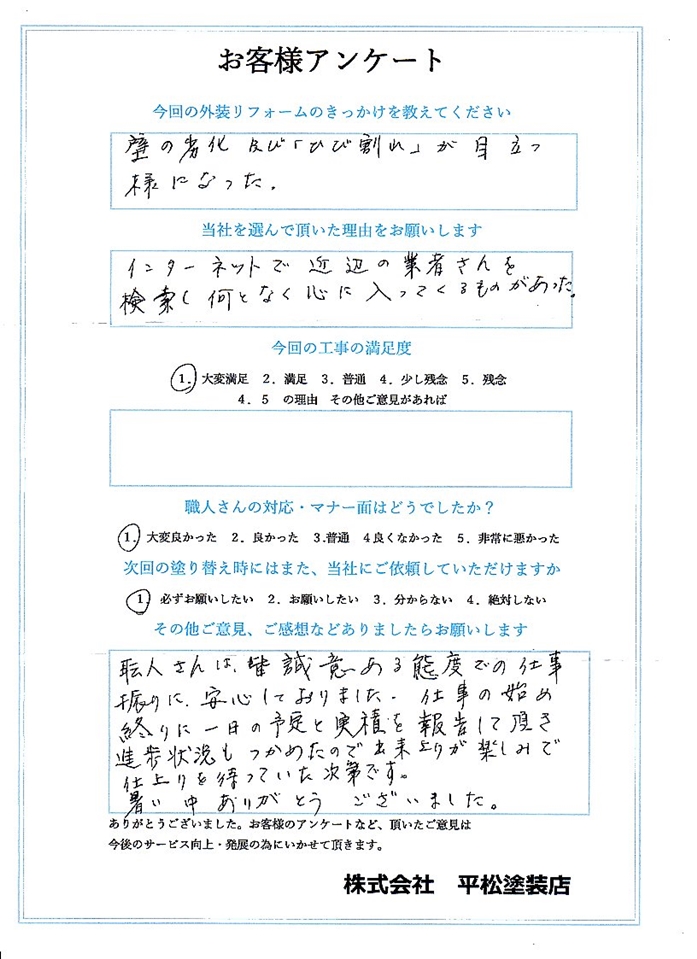 お客様アンケート
今回の外装リフォームのきっかけを教えてください
壁の劣化及び「ひび割れ」が目立つ
様になった.
当社を選んで頂いた理由をお願いします
インターネットで近辺の業者さんを
検索し何となく心に入ってくるものがあった。
今回の工事の満足度
1. 大変満足 2. 満足 3. 普通 4. 少し残念 5. 残念
4.5 の理由 その他ご意見があれば
職人さんの対応・マナー面はどうでしたか？
1. 大変良かった 2. 良かった 3.普通 4良くなかった 5. 非常に悪かった
次回の塗り替え時にはまた、当社にご依頼していただけますか
1 必ずお願いしたい 2. お願いしたい 3. 分からない 4. 絶対しない
その他ご意見、ご感想などありましたらお願いします
職人さんは、皆誠意ある態度での仕事
振りに、安心しておりました. 仕事の始め
終りに一日の予定と実積を報告して頂き
進歩状況もつかめたので出来上りが楽しみで
仕上りを待っていた次第です。
暑い中ありがとうございました。
ありがとうございました。お客様のアンケートなど、頂いたご意見は
今後のサービス向上・発展の為にいかせて頂きます。
株式会社 平松塗装店